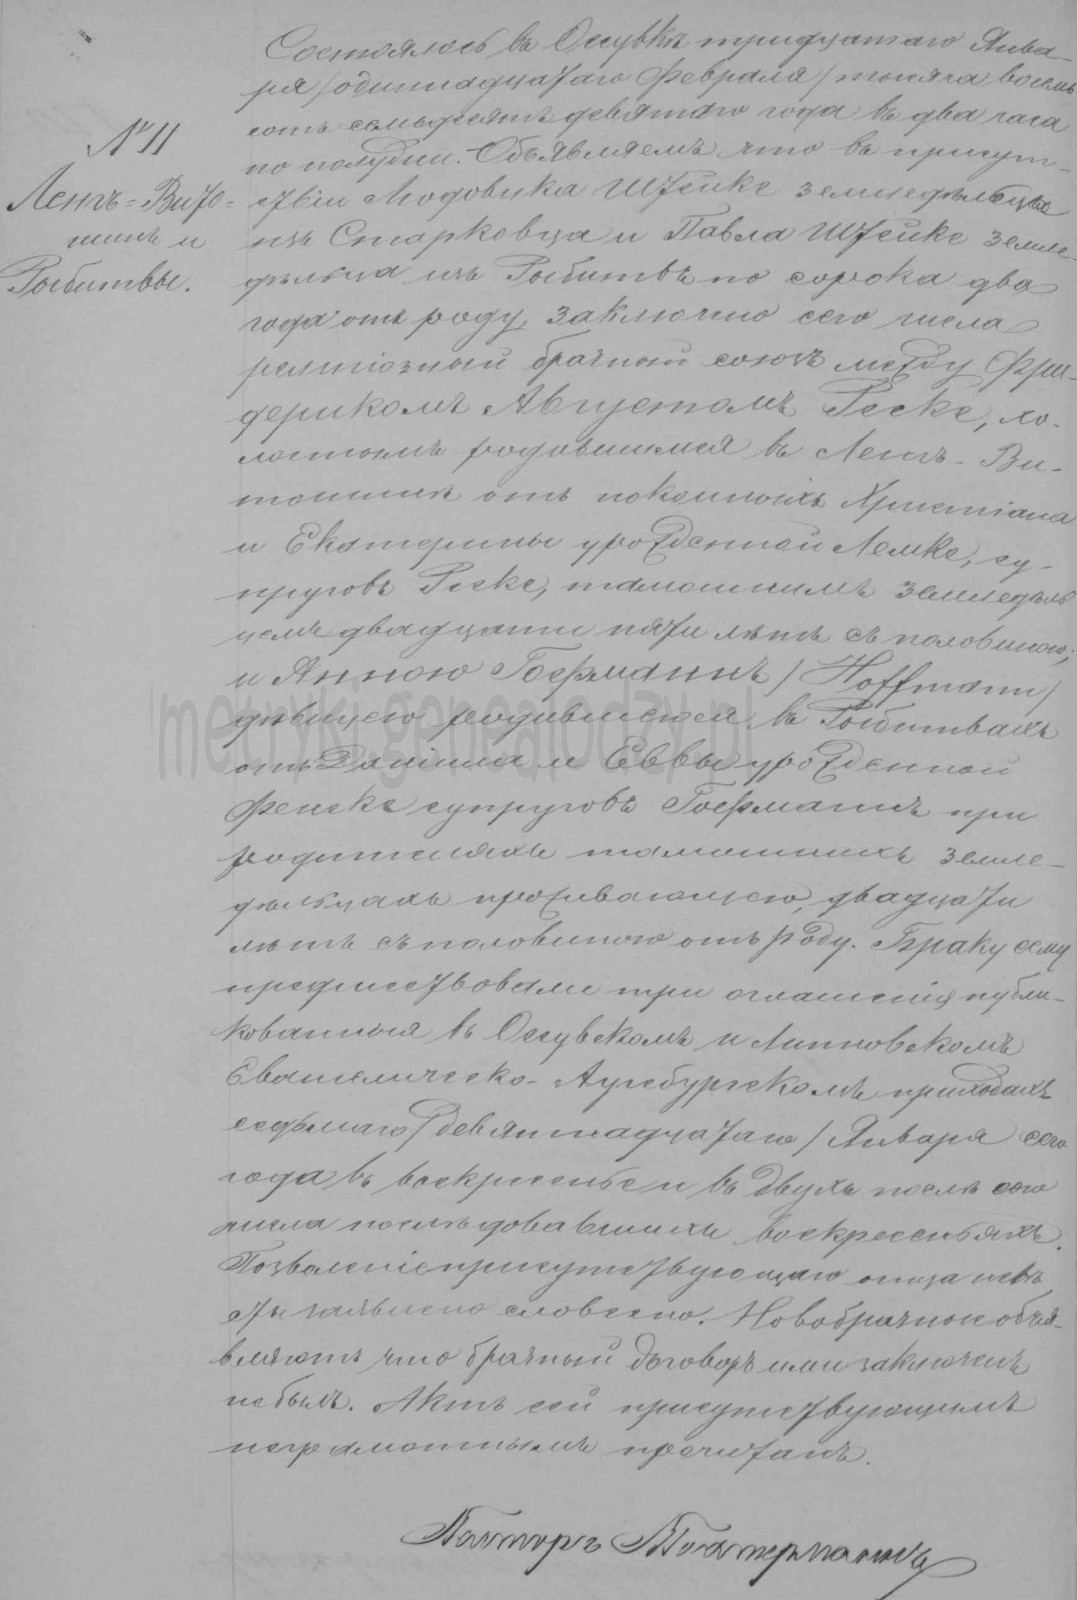 № 11
Ленъ-Вито-
шинъ и
Рыбитвы.
Состоялось въ Оссувкѣ тридцатаго Янва-
ря /одиннадцатаго Февраля/ тысяча восемь
сотъ семьдесятъ девятаго года въ два часа
по полудни. Объявляемъ что въ присут-
ствіи Людовика Штейке земледѣльца
изъ Старковца и Павла Штейке земле-
дѣльца изъ Рыбитвъ по сорока два
года отъ роду, заключено сего числа
религіозный брачный союзъ между Фри-
дерикомъ Августомъ Геске, хо-
лостымъ родившимся въ Ленъ-Ви-
тошинѣ отъ покойныхъ Христіана
и Екатерины урожденной Лемке, су-
пруговъ Геске, тамошнимъ земледѣль
цемъ двадцати пяти лѣтъ съ половиною;
и Анною Гофманнъ /Hoffmann/
дѣвицею родившеюся въ Рыбитвахъ
отъ Даніила и Еввы урожденной
Фенске супруговъ Гофманнъ при
родителяхъ тамошнихъ земле-
дѣльцахъ проживающею, двадцати
лѣтъ съ половиною отъ роду. Браку сему
предшествовали три оглашенія публи-
кованныя въ Оссувскомъ и Липновскомъ
Евангелическо-Аугсбургскомъ приходахъ
седьмаго /девятнадцатаго/ Января сего
года въ воскресенье и въ двухъ послѣ сего
числа послѣдовавшихъ воскресеньяхъ.
Позволеніе присутствующаго отца невѣ
сты заявлено словесно. Новобрачные объя-
вляютъ что брачный договоръ ими заключенъ
не былъ. Актъ сей присутствующимъ
неграмотнымъ прочитанъ.
Пасторъ
metryki.genealodzy.pl